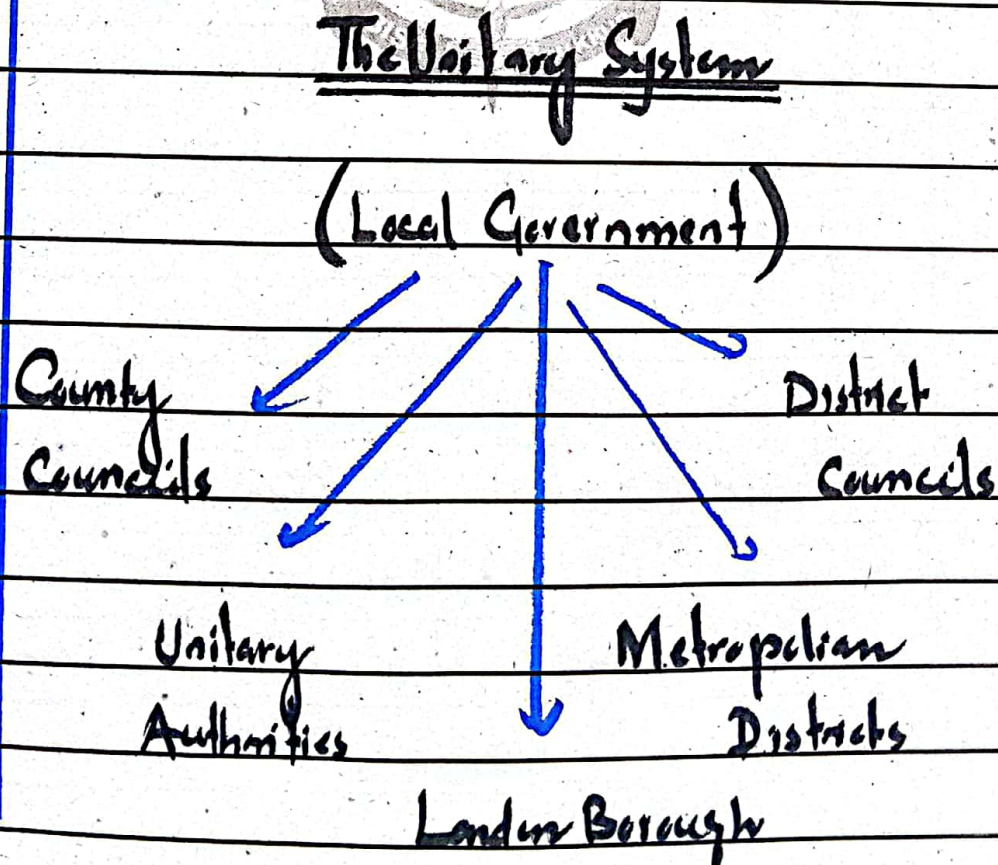 The Unitary System
(Local Government)
County
Councils
District
Councils
Unitary
Authorities
Metropolian
Districts
London Borough